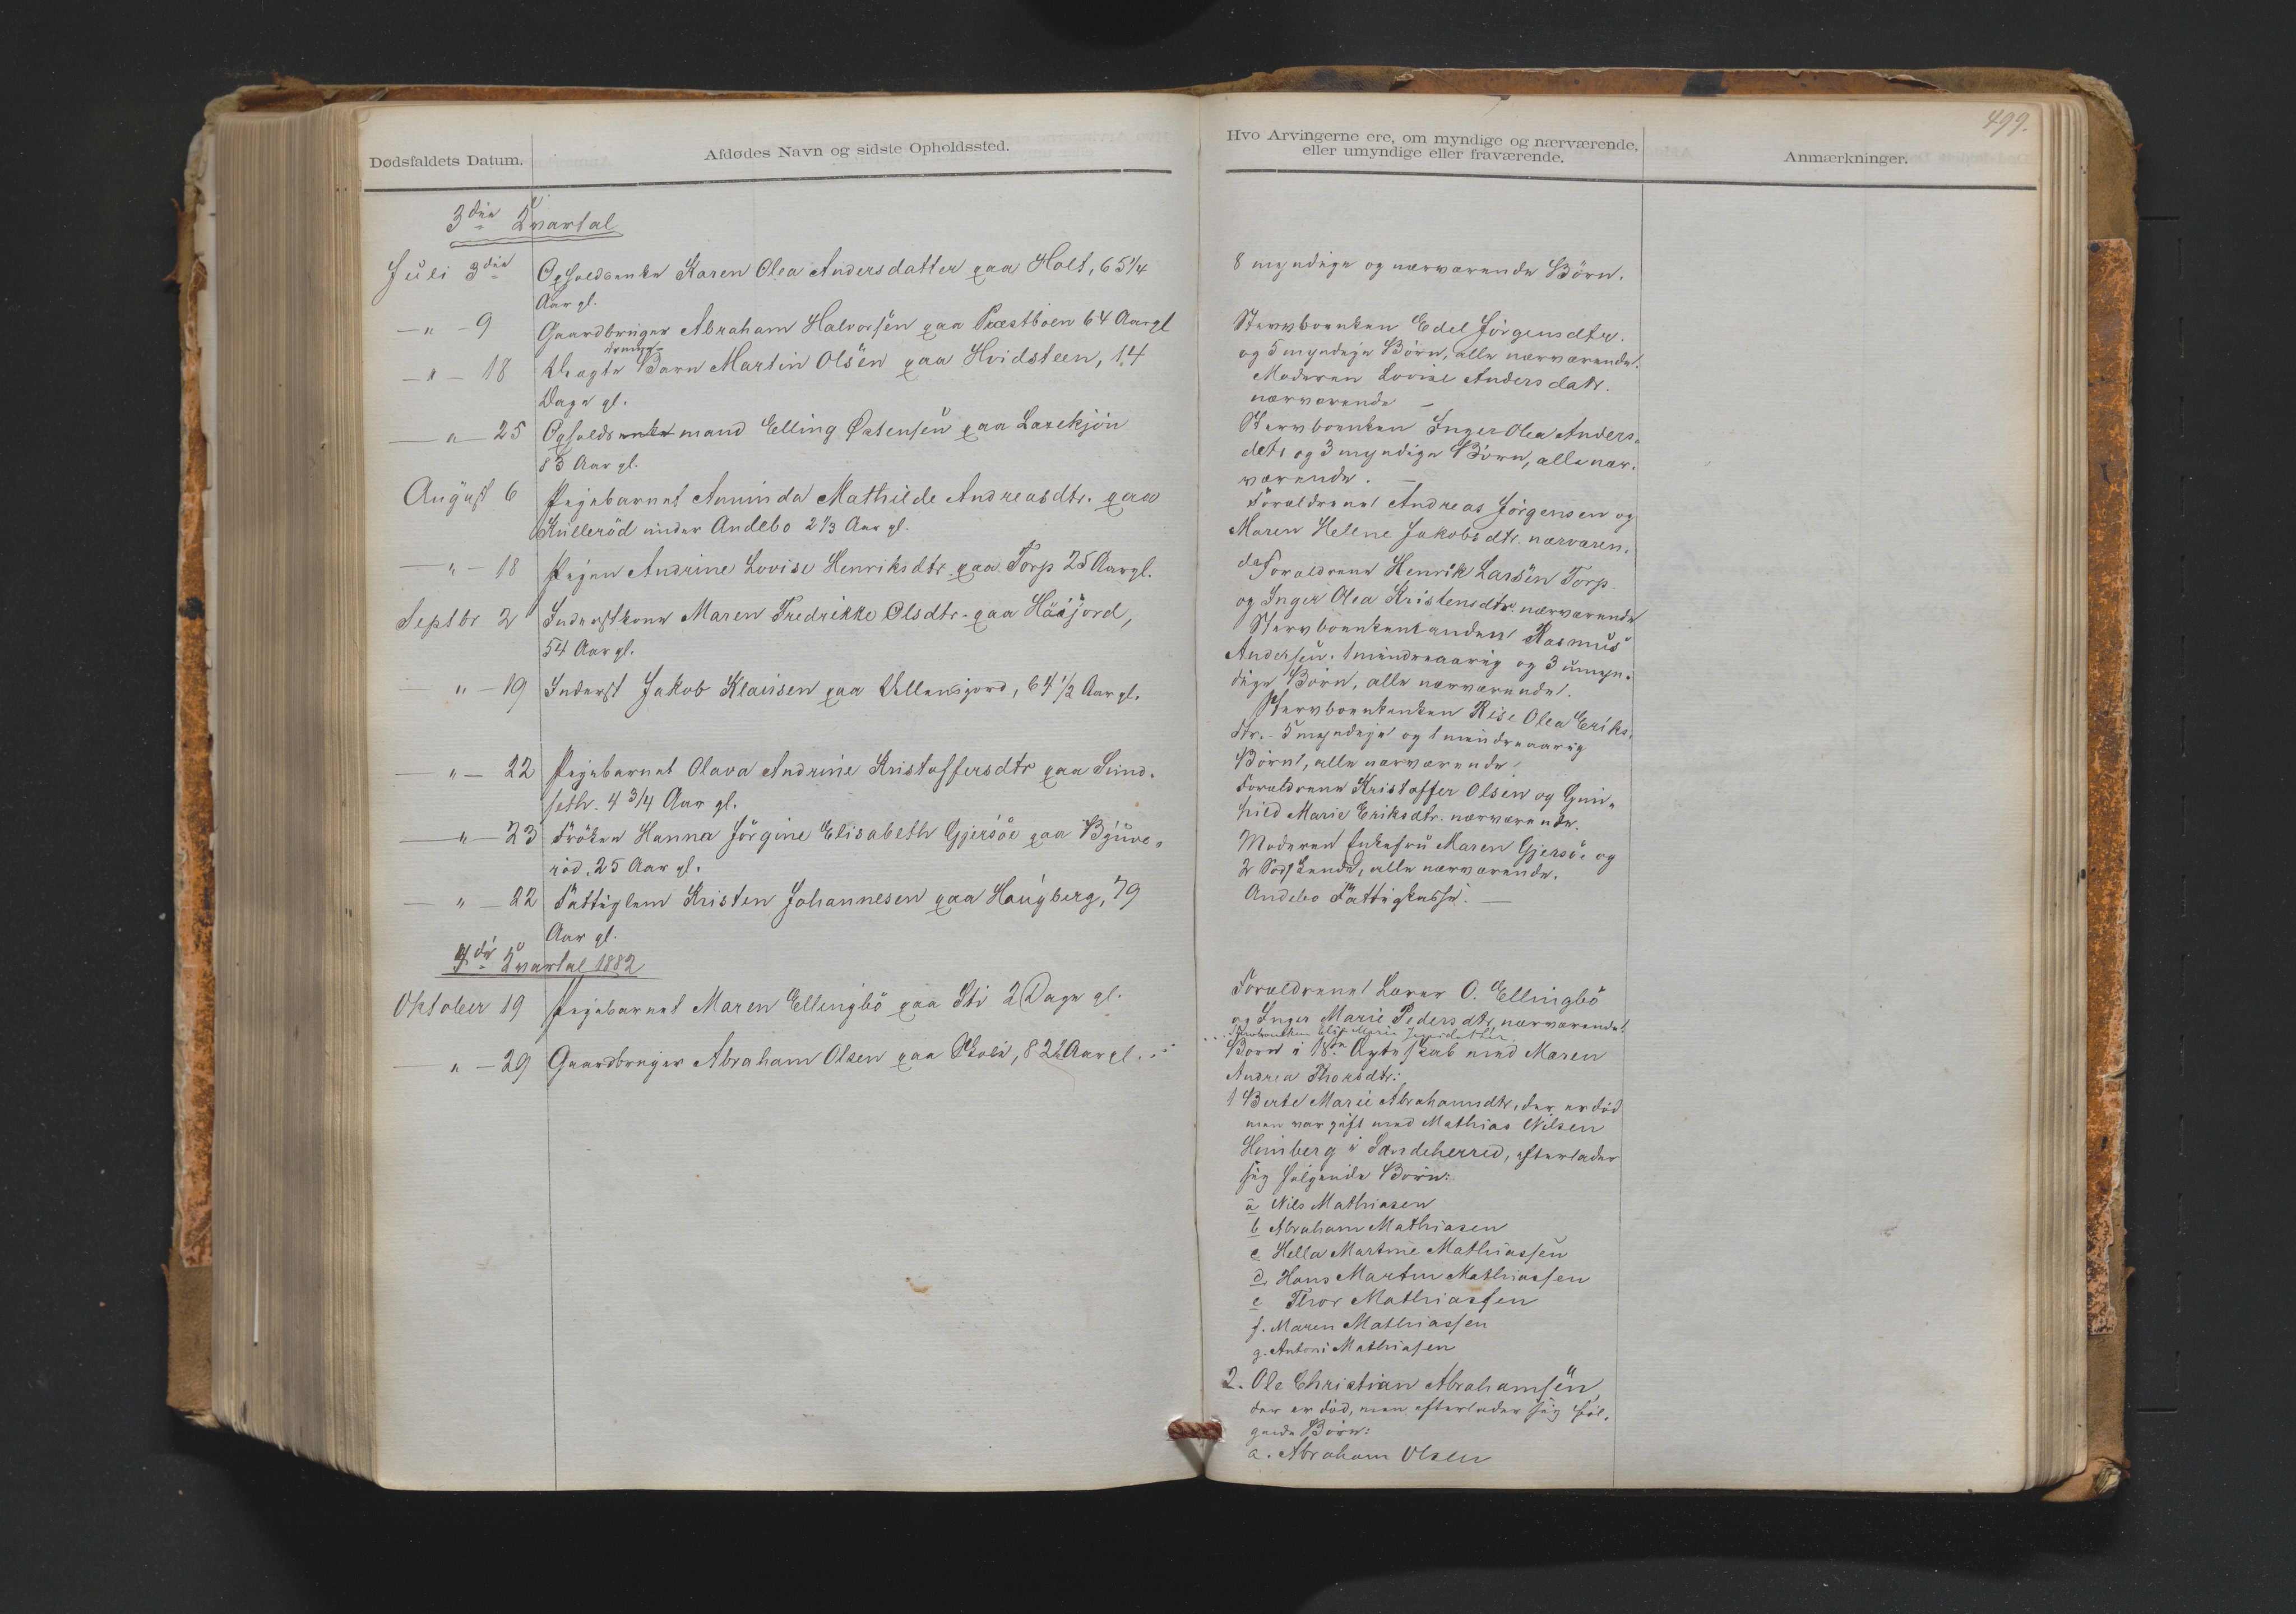 499.
Dødsfaldets Datum.
Afdødes Navn og sidste Opholdssted.
Hvo Arvingerne ere, om myndige og nærværende,
eller umyndige eller fraværende.
Anmærkninger.
3die Qvartal
Juli 3die
Opholdsenke Karen Olea Andersdatter paa Holt, 65 1/4
Aar gl.
— " — 9
Gaardbruger Abraham Halvorsen paa Præstboen 64 Aar gl
— " — 18
uægte Barn Martin Olsen paa Hvidsteen, 14
Dage gl.
— " — 25
Opholdsenke mand Elling Østensen paa Laskjön
83 Aar gl.
August 6
Pigebarnet Aminda Mathilde Andreasdtr. paa
Kulleröd under Andebo 2 1/3 Aar gl.
— " — 18
Pigen Andrine Lovise Henriksdtr. paa Torp 25 Aar gl.
Septbr 2
Inderstkone Maren Fredrikke Olsdtr. paa Håsjord,
54 Aar gl.
— " — 19
Inderst Jakob Klausen paa Vellensjord, 64 1/2 Aar gl.
— " — 22
Pigebarnet Olava Andrine Kristoffersdtr paa Sund-
seth. 4 3/4 Aar gl.
— " — 23
Fröken Hanna Jörgine Elisabeth Gjersöe paa Bjuve-
röd, 25 Aar gl.
— " — 22
Fattiglem Kristen Johannesen paa Haugberg, 79
Aar gl.
4de Qvartal 1882
Oktober 19
Pigebarnet Maren Ellingbö paa Sti 2 Dage gl.
— " — 29
Gaardbruger Abraham Olsen paa Skoli, 82 1/2 Aar gl.
8 myndige og nærværende Börn.
Stervboenken Edel Jörgensdtr.
og 5 myndige Börn, alle nærværende.
Moderen Lovise Andersdatr.
nærværende —
Stervboenken Inger Olea Anders-
dtr og 3 myndige Börn, alle nær-
værende. —
Forældrene Andreas Jörgensen og
Maren Helene Jakobsdtr. nærværen-
de
Forældrene Henrik Larsen Torp.
og Inger Olea Kristensdtr. nærværende
Rasmus
Andersen. 1 mindreaarig og 3 umyn-
dige Börn, alle nærværende.
Rise Olea Eriks-
dtr. 5 myndige og 1 mindreaarig
Börn, alle nærværende.
Forældrene Kristoffer Olsen og Gun-
hild Marie Eriksdtr. nærværende.
Moderen Enkefru Maren Gjersöe og
2 Södskende, alle nærværende.
Andebo Fattigkasse. —
Forældrene Lærer O. Ellingbö
og Inger Marie Pedersdtr, nærværende.
Börn i 1ste Ægteskab med Maren
Andrea Thorsdtr:
1 Berte Marie Abrahamsdtr, der er död
men var gift med Mathias Nilsen
Himberg i Sandeherred, efterlader
sig følgende Börn:
a Nils Mathiasen
b Abraham Mathiasen
c Hella Martine Mathiassen
d. Hans Martin Mathiassen
e Thor Mathiassen
f. Maren Mathiassen
g. Antoni Mathiasen
2. Ole Christian Abrahamsen,
der er död, men efterlader sig föl-
gende Börn:
a. Abraham Olsen